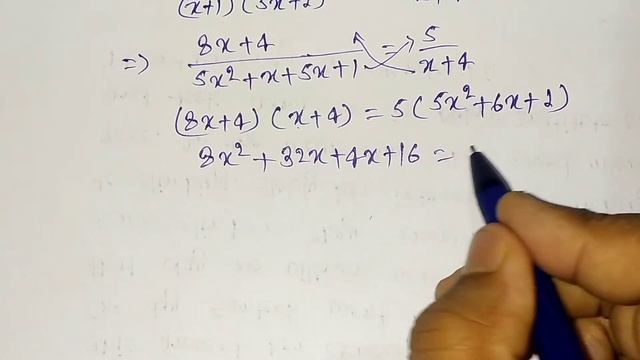 (x+1) (5x+2)
=> 8x+4 / 5x²+x+5x+1 = 5 / x+4
(8x+4) (x+4) = 5(5x²+6x+1)
8x²+32x+4x+16 =